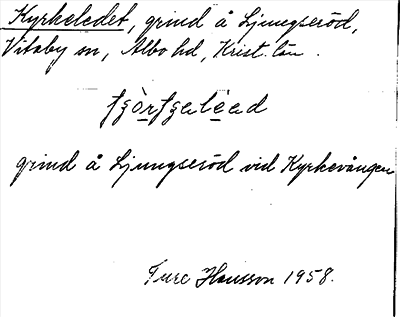 Kyrkeledet, grind å Ljungseröd,
Vitaby sn, Albo hd, Krist. län.
grind å Ljungseröd vid Kyrkevången
Ture Hansson 1958.